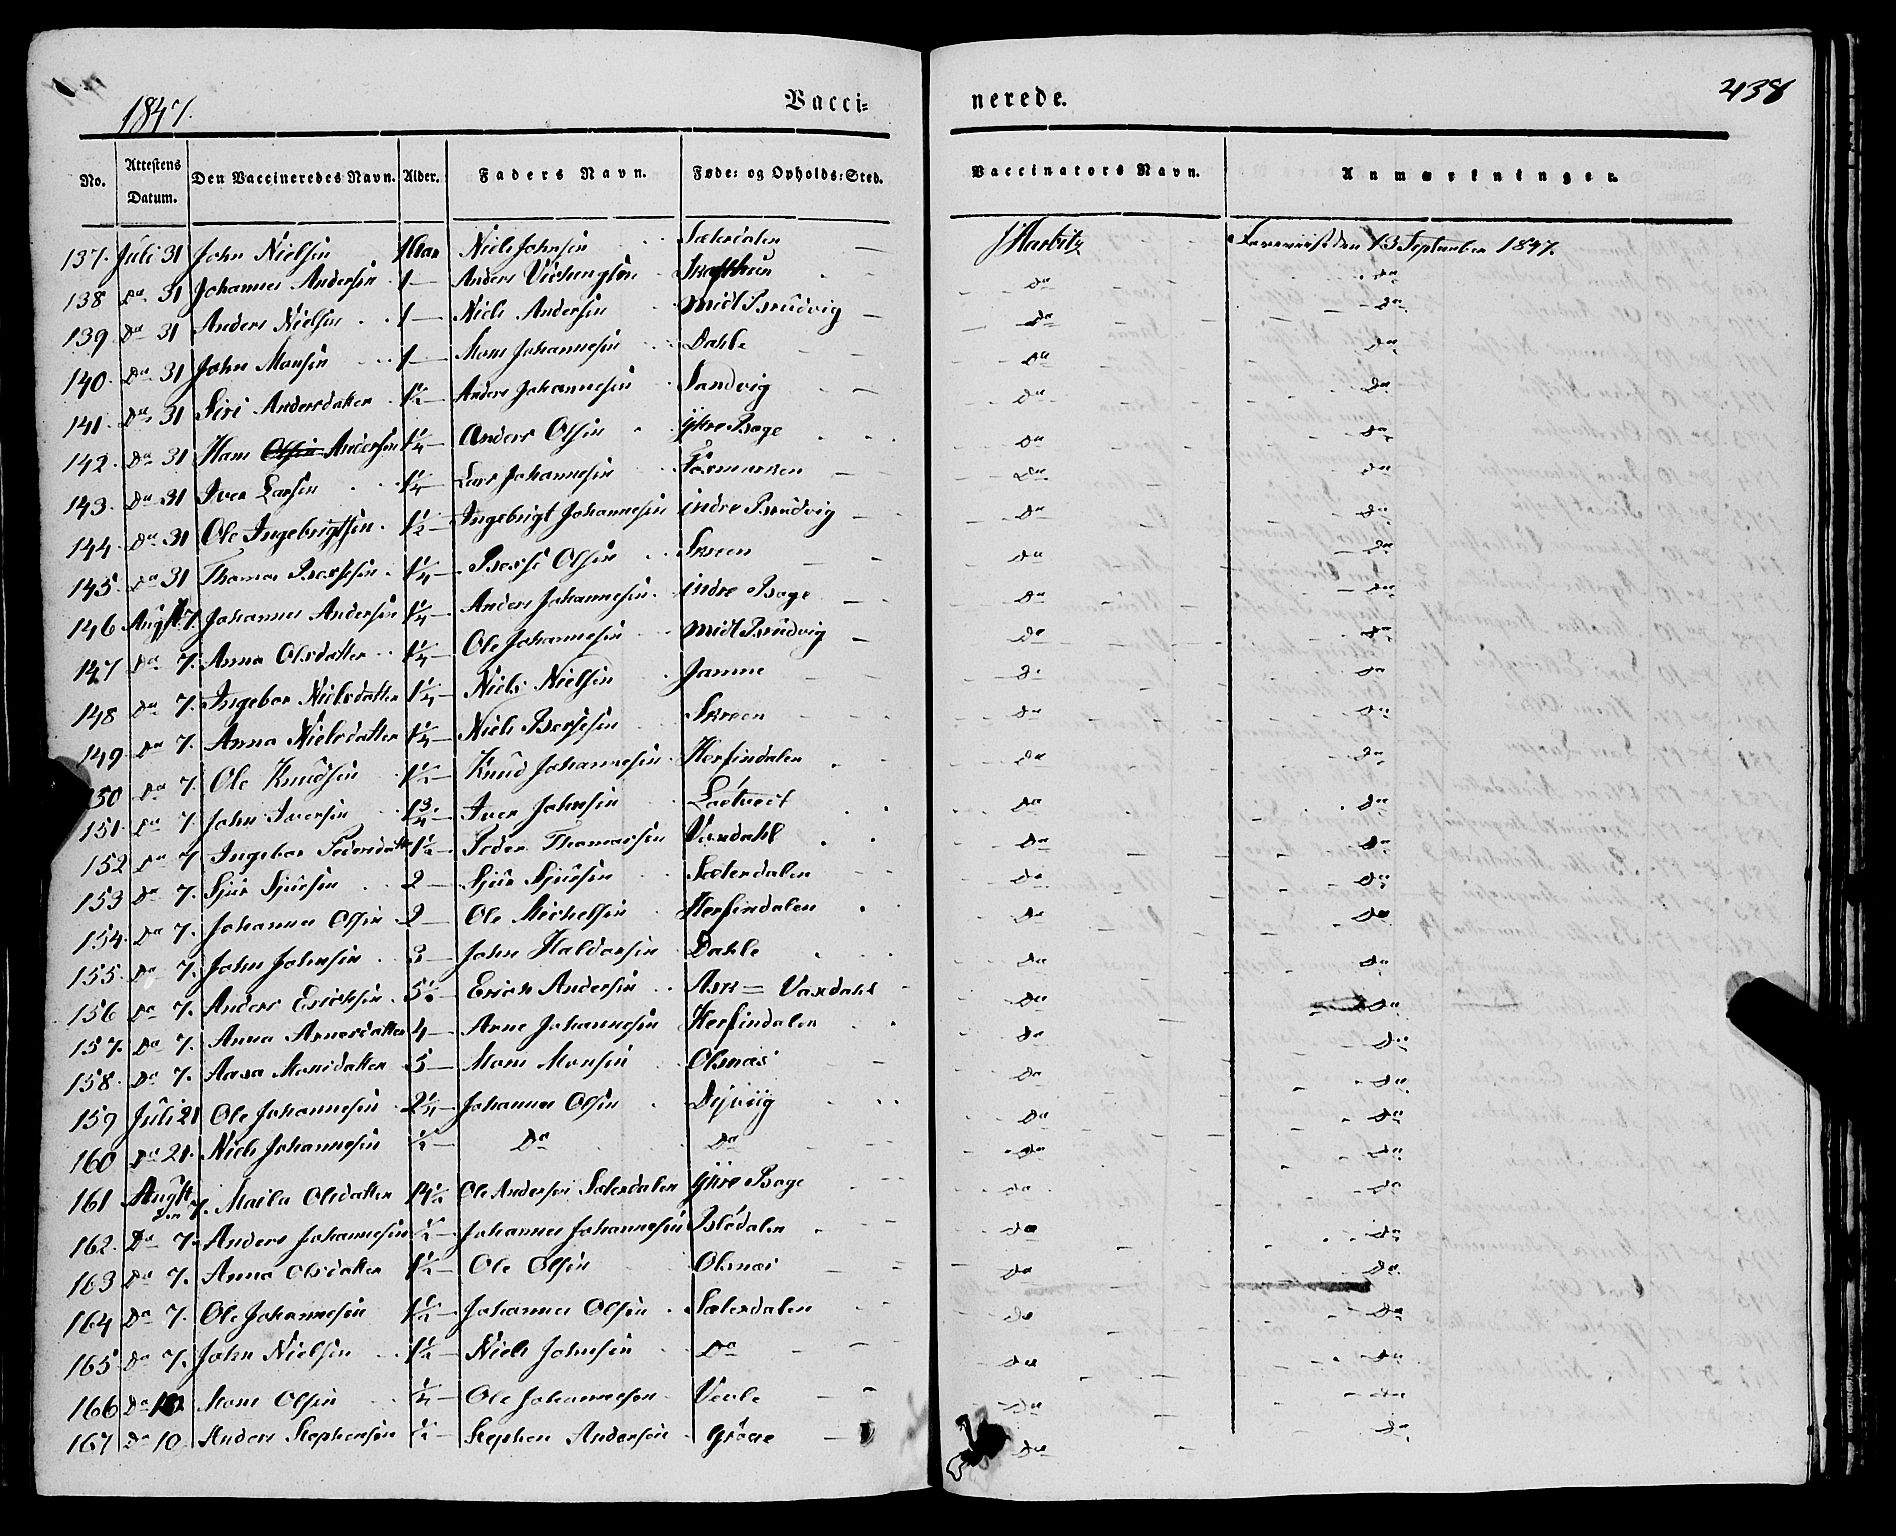 1847.
Vacci=
nerede.
438
No. Attestens Datum. Den Vaccineredes Navn. Alder. Faders Navn. Føde= og Opholds=Sted. Vaccinators Navn. Anmærkninger.
137. Juli 31 John Nielsen 1 Aar Niels Johnsen Sælesdalen J Harbitz Foreviist den 13 September 1847.
138 Do 31 Johannes Andersen 1 Anders Skafthun Do Do
139 Do 31 Anders Nielsen 1 Niels Andersen midt Brudvig Do Do
140. Do 31 John Monsen 1 Mons Johannesen Dahle Do Do
141. Do 31 Siri Andersdatter 1½ Anders Johannesen Sandvig Do Do
142. Do 31 Hans Olsen Andersen 1¼ Anders Olsen ytre Boge Do Do
143. Do 31 Iver Larsen 1¼ Lars Johannesen Fosmarken Do Do
144 Do 31 Ole Ingebrigtsen 1½ Ingebrigt Johannesen indre Brudvig Do Do
145. Do 31 Thomas Børgesen 1¼ Børge Olsen Skreen Do Do
146 Augst 7 Johannes Andersen 1¼ Anders Johannesen indre Boge Do Do
147 Do 7. Anna Olsdatter 1¼ Ole Johannesen midt Brudvig Do Do
148 Do 7. Ingebor Nielsdatter 1¼ Niels Nielsen Jamne Do Do
149 Do 7. Anna Nielsdatter 1¼ Niels Børgesen Skreen Do Do
150 Do 7. Ole Knudsen 1½ Knud Johannesen Herfindalen Do Do
151. Do 7 John Iversen 1¾ Iver Johnsen Låtveit Do Do
152 Do 7 Ingebor Pedersdatter 1½ Peder Thomassen Vaxdahl Do Do
153 Do 7. Sjur Sjursen 2 Sjur Sjursen Sælesdalen Do Do
154. Do 7. Johannes Olsen 2 Ole Mickelsen Herfindalen Do Do
155. Do 7. John Johnsen 3 John Haldorsen Dahle Do Do
156 Do 7. Anders Ericksen 5½ Erick Andersen Ask = Vaxdahl Do Do
157. Do 7. Anna Arnesdatter 4 Arne Johannesen Herfindalen Do Do
158. Do 7. Aasa Monsdatter 5 Mons Monsen Olsnæs Do Do
159 Juli 21 Ole Johannesen 2¼ Johannes Olsen Dyvig Do Do
160 Do 21. Niels Johannesen ½ Do Do Do Do
161 Augst den 7. Marta Olsdatter 14½ Ole Andersen Sælesdalen ytre Boge Do Do
162. Do 7. Anders Johannesen ½ Johannes Johannesen Blødalen Do Do
163 Do 7. Anna Olsdatter 1½ Ole Olsen Olsnæs Do Do
164 Do 7. Ole Johannesen 1½ Johannes Olsen Sælesdalen Do Do
165 Do 7. John Nielsen 1½ Niels Johnsen Do Do Do
166 Do 10 Mons Olsen ¼ Ole Johannesen Veale Do Do
167 Do 10. Anders Stephensen ½ Stephen Andersen Grøve Do Do